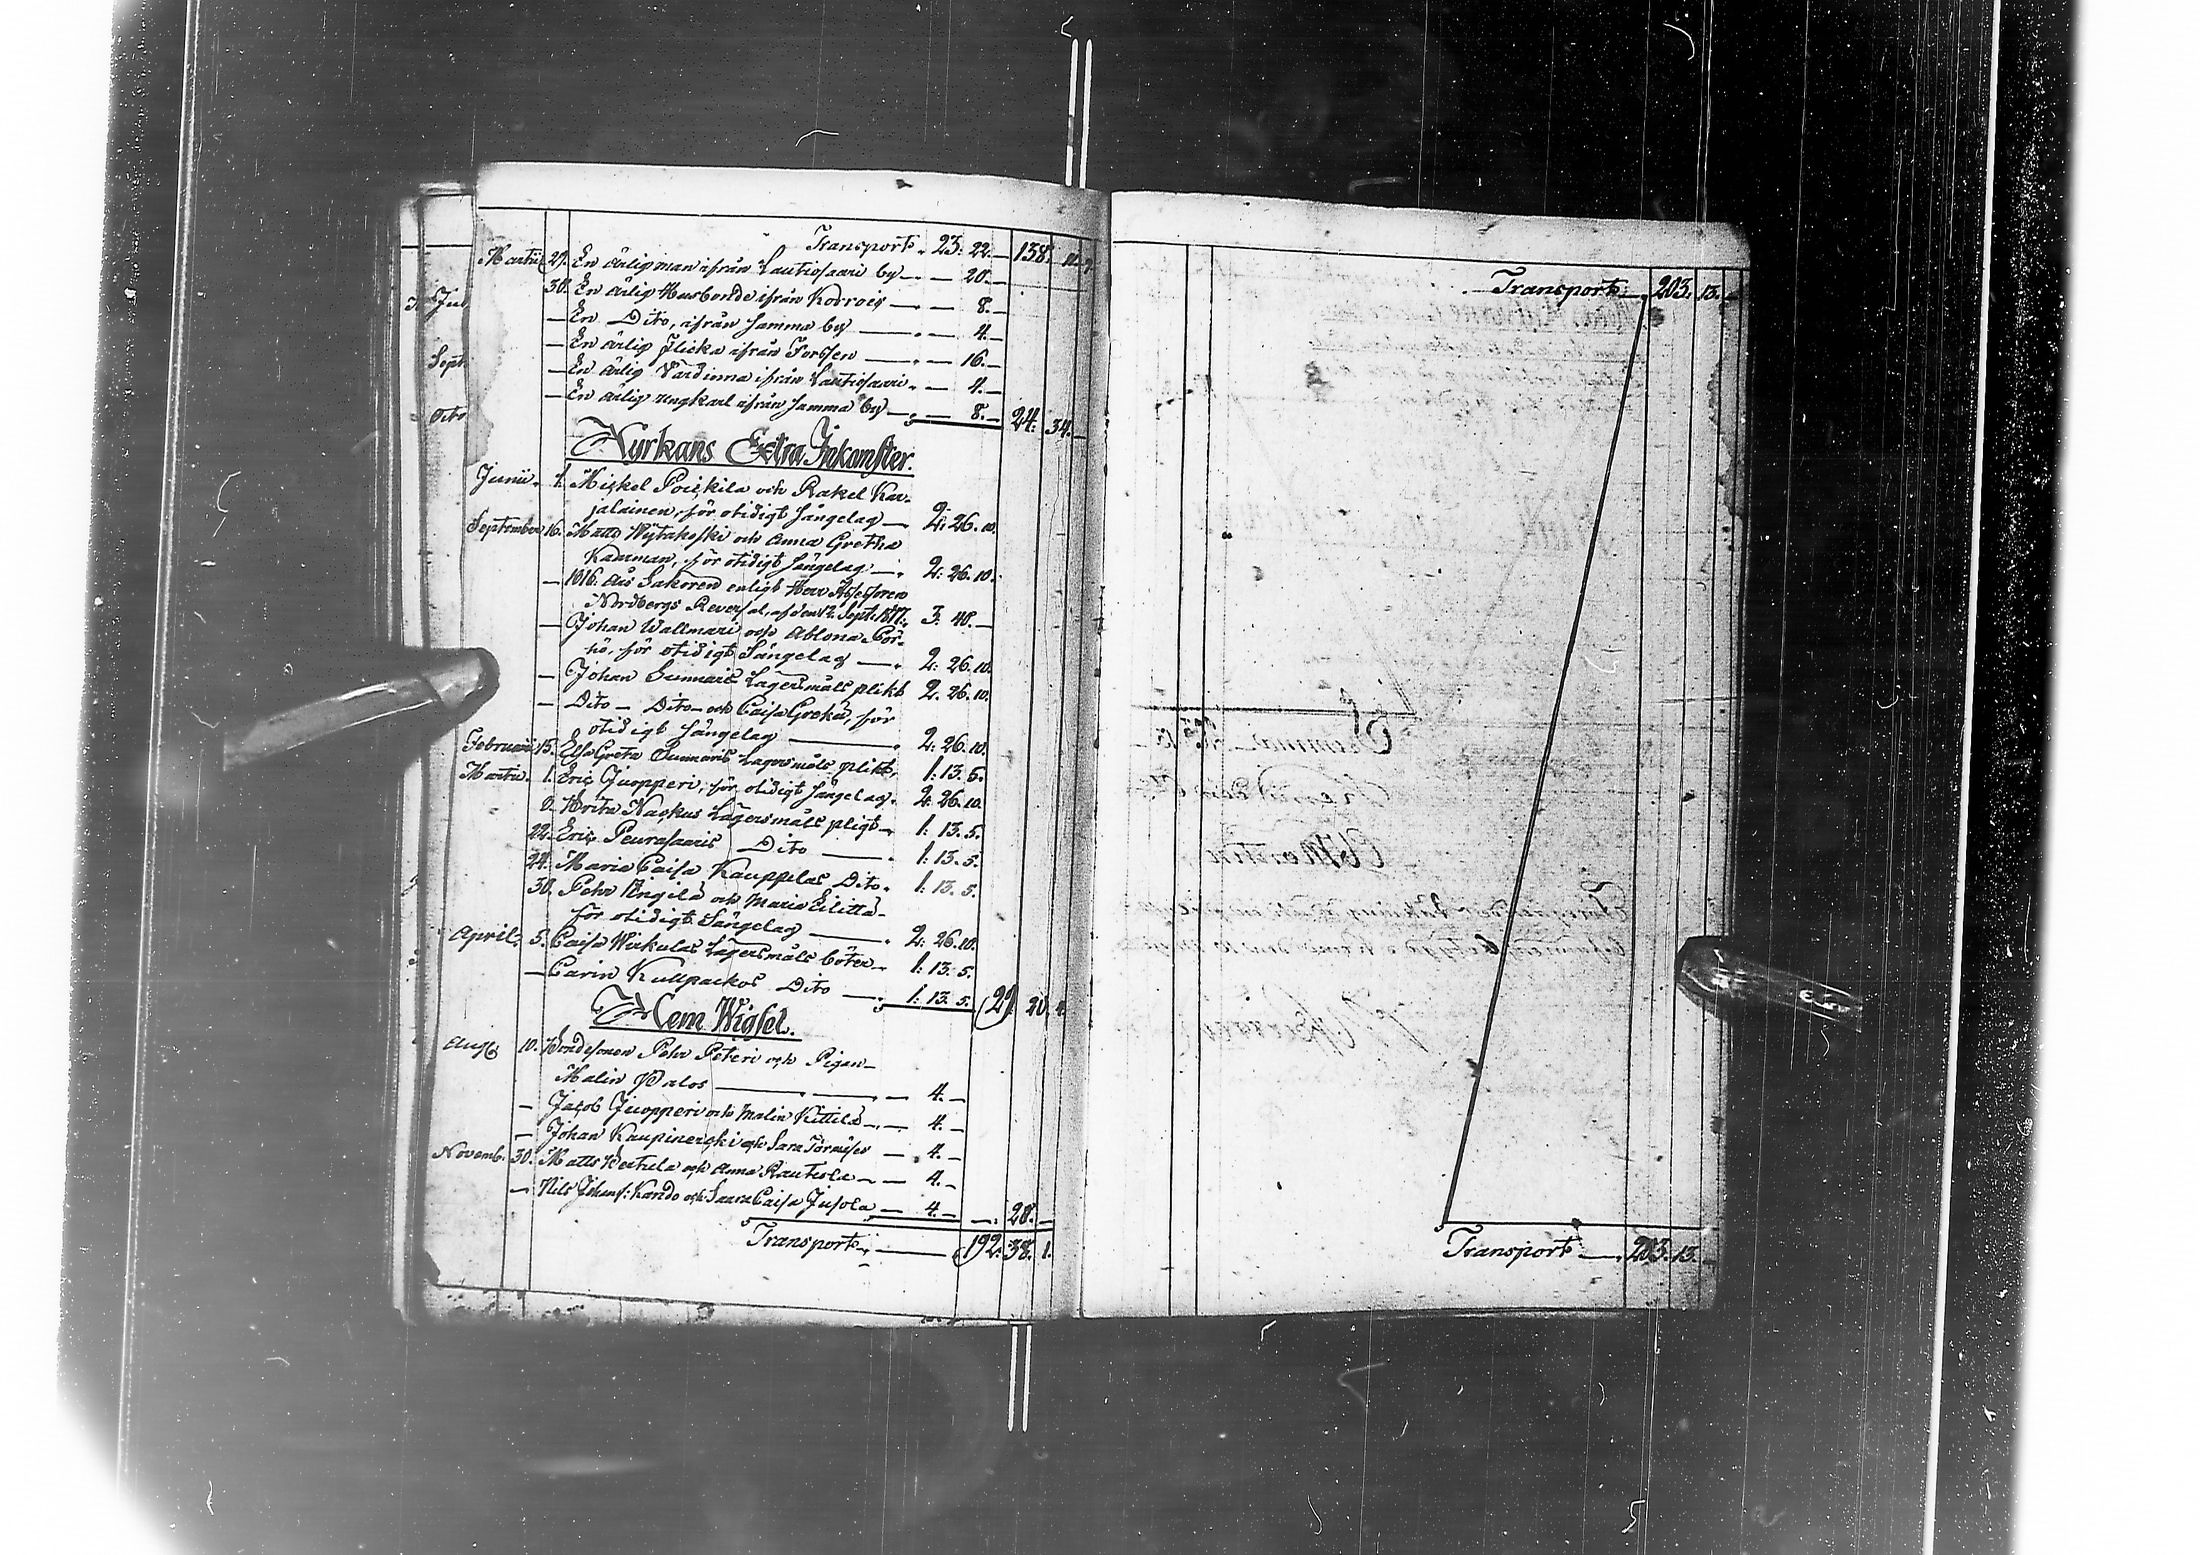 Transport 23: 22. — 138. 10. 7.
Martii 27. En ärlig man ifrån Lautiosaari by — — 20. —
30. En ärlig Husbonde ifrån Kodrois — — 8. —
— En Dito, ifrån samma by — — 4. —
— En ärlig Flicka ifrån Forssen — — 16. —
— En ärlig Värdinna ifrån Lautiosaari — 4. —
— En ärlig ungkarl ifrån samma by — — 8. — 24. 34. —
Kyrkans Extra Inkomster.
Junii 1. Mickel Poickila och Rakel Kar-
jalainen, för otidigt sängelag — 2: 26. 10.
September 16. Matts Wytakoski och Anna Gretha
Kaarman, för otidigt sängelag — 2: 26. 10.
— 1816 års Sakören enligt Herr Assessoren
Nordbergs Reversal, af den 12 Sept. 1817. 3. 40. —
— Johan Wallmari och Ablona Pör-
hö, för otidigt Sängelag — 2: 26. 10.
— Johan Sunnaris Lägersmåls plikt 2. 26. 10.
— Dito — Dito — och Caisa Greka, för
otidigt sängelag — 2: 26. 10.
Februarii 15. Elsa Greta Sunnaris Lägersmåls plikt, 1: 13. 5.
Martii 1. Eric Juopperi, för otidigt sängelag. 2: 26. 10.
Brita Nackus Lägersmåls pligt — 1: 13. 5.
22. Eric Peurasaaris Dito — 1: 13. 5.
24. Maria Caisa Kauppilas Dito. 1: 13. 5.
30. Pehr Engilä och Maria Eilittä
för otidigt Sängelag — 2: 26. 10.
April 5. Caisa Wirkulas Lägersmåls böter — 1: 13. 5.
— Carin Kullpackos Dito — 1: 13. 5. 29. 20. 4.
Hem Wigsel.
Aug. 10. Bondesonen Pehr Peteri och Pigan
Malin Palos — — 4. —
— Jacob Juopperi och Malin Kittilä — 4. —
— Johan Kaupinerski och Sara Törmises — 4. —
Novemb. 30. Matts Kextula och Anna Rautiola — 4. —
— Nils Johans: Kando och Saara Caisa Jusola — 4. — —: 20. —
Transport — 192: 38. 1.
Jul
Sept.
Octo
Transport — 203. 13. —
Transport — 203. 13. —